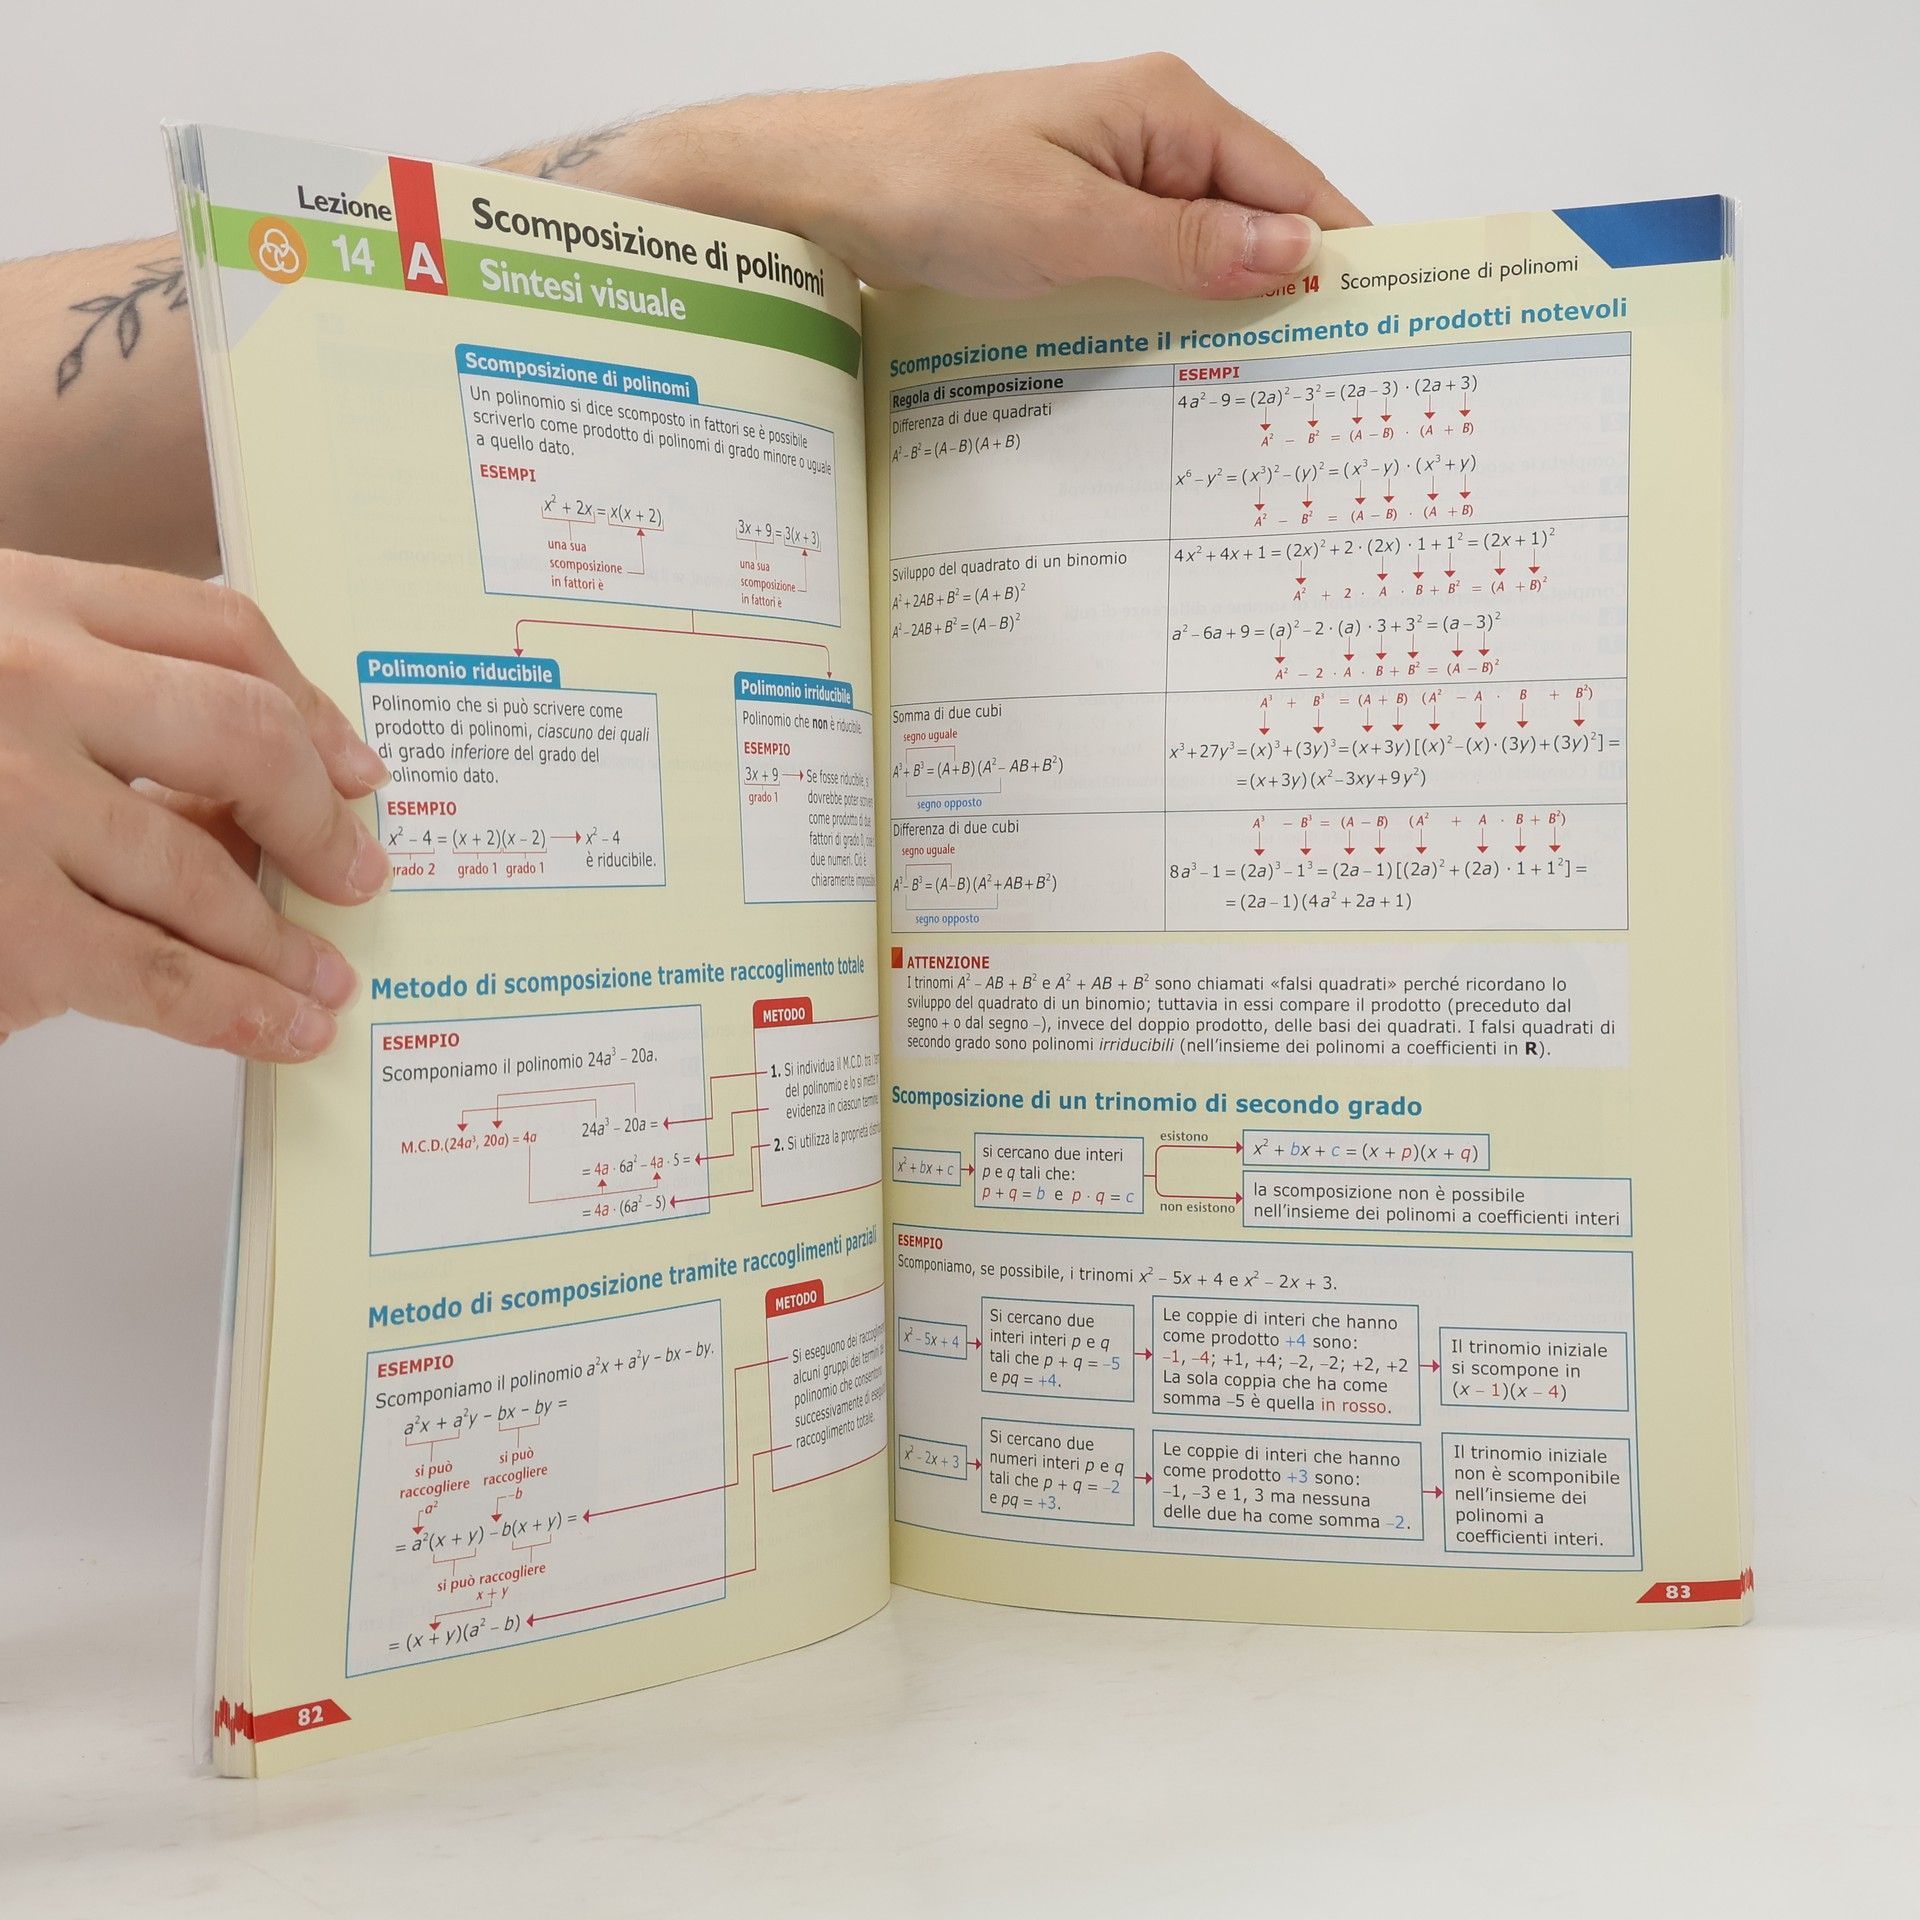 Lezione
14 A
Scomposizione di polinomi
Sintesi visuale
Scomposizione di polinomi
Un polinomio si dice scomposto in fattori se è possibile
scriverlo come prodotto di polinomi di grado minore o uguale
a quello dato.
ESEMPI
x² + 2x = x(x + 2)
una sua
scomposizione
in fattori è
3x + 9 = 3(x + 3)
una sua
scomposizione
in fattori è
Polimonio riducibile
Polinomio che si può scrivere come
prodotto di polinomi, ciascuno dei quali
di grado inferiore del grado del
polinomio dato.
ESEMPIO
x² – 4 = (x + 2)(x – 2) → x² – 4
è riducibile.
grado 2 grado 1 grado 1
Polimonio irriducibile
Polinomio che non è riducibile.
ESEMPIO
3x + 9 → Se fosse riducibile, si
grado 1
dovrebbe poter
come prodotto di due
fattori di grado 0,
due numeri. Ciò è
chiaramente
Metodo di scomposizione tramite raccoglimento totale
ESEMPIO
Scomponiamo il polinomio 24a³ – 20a.
M.C.D.(24a³, 20a) = 4a
24a³ – 20a =
= 4a · 6a² – 4a · 5 =
= 4a · (6a² – 5)
METODO
1. Si individua il M.C.D. tra i
del polinomio e lo si mette in
evidenza in ciascun termine.
2. Si utilizza la proprietà
Metodo di scomposizione tramite raccoglimenti parziali
ESEMPIO
Scomponiamo il polinomio a²x + a²y – bx – by.
a²x + a²y – bx – by =
si può
raccogliere
a²
si può
raccogliere
–b
= a²(x + y) – b(x + y) =
si può raccogliere
x + y
= (x + y)(a² – b)
METODO
Si eseguono dei
alcuni gruppi dei termini del
polinomio che
successivamente di
raccoglimento totale.
82
14 Scomposizione di polinomi
Scomposizione mediante il riconoscimento di prodotti notevoli
Regola di scomposizione
ESEMPI
Differenza di due quadrati
A² – B² = (A – B)(A + B)
4a² – 9 = (2a)² – 3² = (2a – 3) · (2a + 3)
A² – B² = (A – B) · (A + B)
x⁶ – y² = (x³)² – (y)² = (x³ – y) · (x³ + y)
A² – B² = (A – B) · (A + B)
Sviluppo del quadrato di un binomio
A² + 2AB + B² = (A + B)²
A² – 2AB + B² = (A – B)²
4x² + 4x + 1 = (2x)² + 2 · (2x) · 1 + 1² = (2x + 1)²
A² + 2 · A · B + B² = (A + B)²
a² – 6a + 9 = (a)² – 2 · (a) · 3 + 3² = (a – 3)²
A² – 2 · A · B + B² = (A – B)²
Somma di due cubi
segno uguale
A³ + B³ = (A + B)(A² – AB + B²)
segno opposto
A³ + B³ = (A + B) (A² – A · B + B²)
x³ + 27y³ = (x)³ + (3y)³ = (x + 3y)[(x)² – (x) · (3y) + (3y)²] =
= (x + 3y)(x² – 3xy + 9y²)
Differenza di due cubi
segno uguale
A³ – B³ = (A – B)(A² + AB + B²)
segno opposto
A³ – B³ = (A – B) (A² + A · B + B²)
8a³ – 1 = (2a)³ – 1³ = (2a – 1)[(2a)² + (2a) · 1 + 1²] =
= (2a – 1)(4a² + 2a + 1)
ATTENZIONE
I trinomi A² – AB + B² e A² + AB + B² sono chiamati «falsi quadrati» perché ricordano lo
sviluppo del quadrato di un binomio; tuttavia in essi compare il prodotto (preceduto dal
segno + o dal segno –), invece del doppio prodotto, delle basi dei quadrati. I falsi quadrati di
secondo grado sono polinomi irriducibili (nell'insieme dei polinomi a coefficienti in R).
Scomposizione di un trinomio di secondo grado
x² + bx + c
si cercano due interi
p e q tali che:
p + q = b e p · q = c
esistono
x² + bx + c = (x + p)(x + q)
non esistono
la scomposizione non è possibile
nell'insieme dei polinomi a coefficienti interi
ESEMPIO
Scomponiamo, se possibile, i trinomi x² – 5x + 4 e x² – 2x + 3.
x² – 5x + 4
Si cercano due
interi interi p e q
tali che p + q = –5
e pq = +4.
Le coppie di interi che hanno
come prodotto +4 sono:
–1, –4; +1, +4; –2, –2; +2, +2
La sola coppia che ha come
somma –5 è quella in rosso.
Il trinomio iniziale
si scompone in
(x – 1)(x – 4)
x² – 2x + 3
Si cercano due
numeri interi p e q
tali che p + q = –2
e pq = +3.
Le coppie di interi che hanno
come prodotto +3 sono:
–1, –3 e 1, 3 ma nessuna
delle due ha come somma –2.
Il trinomio iniziale
non è scomponibile
nell'insieme dei
polinomi a
coefficienti interi.
83